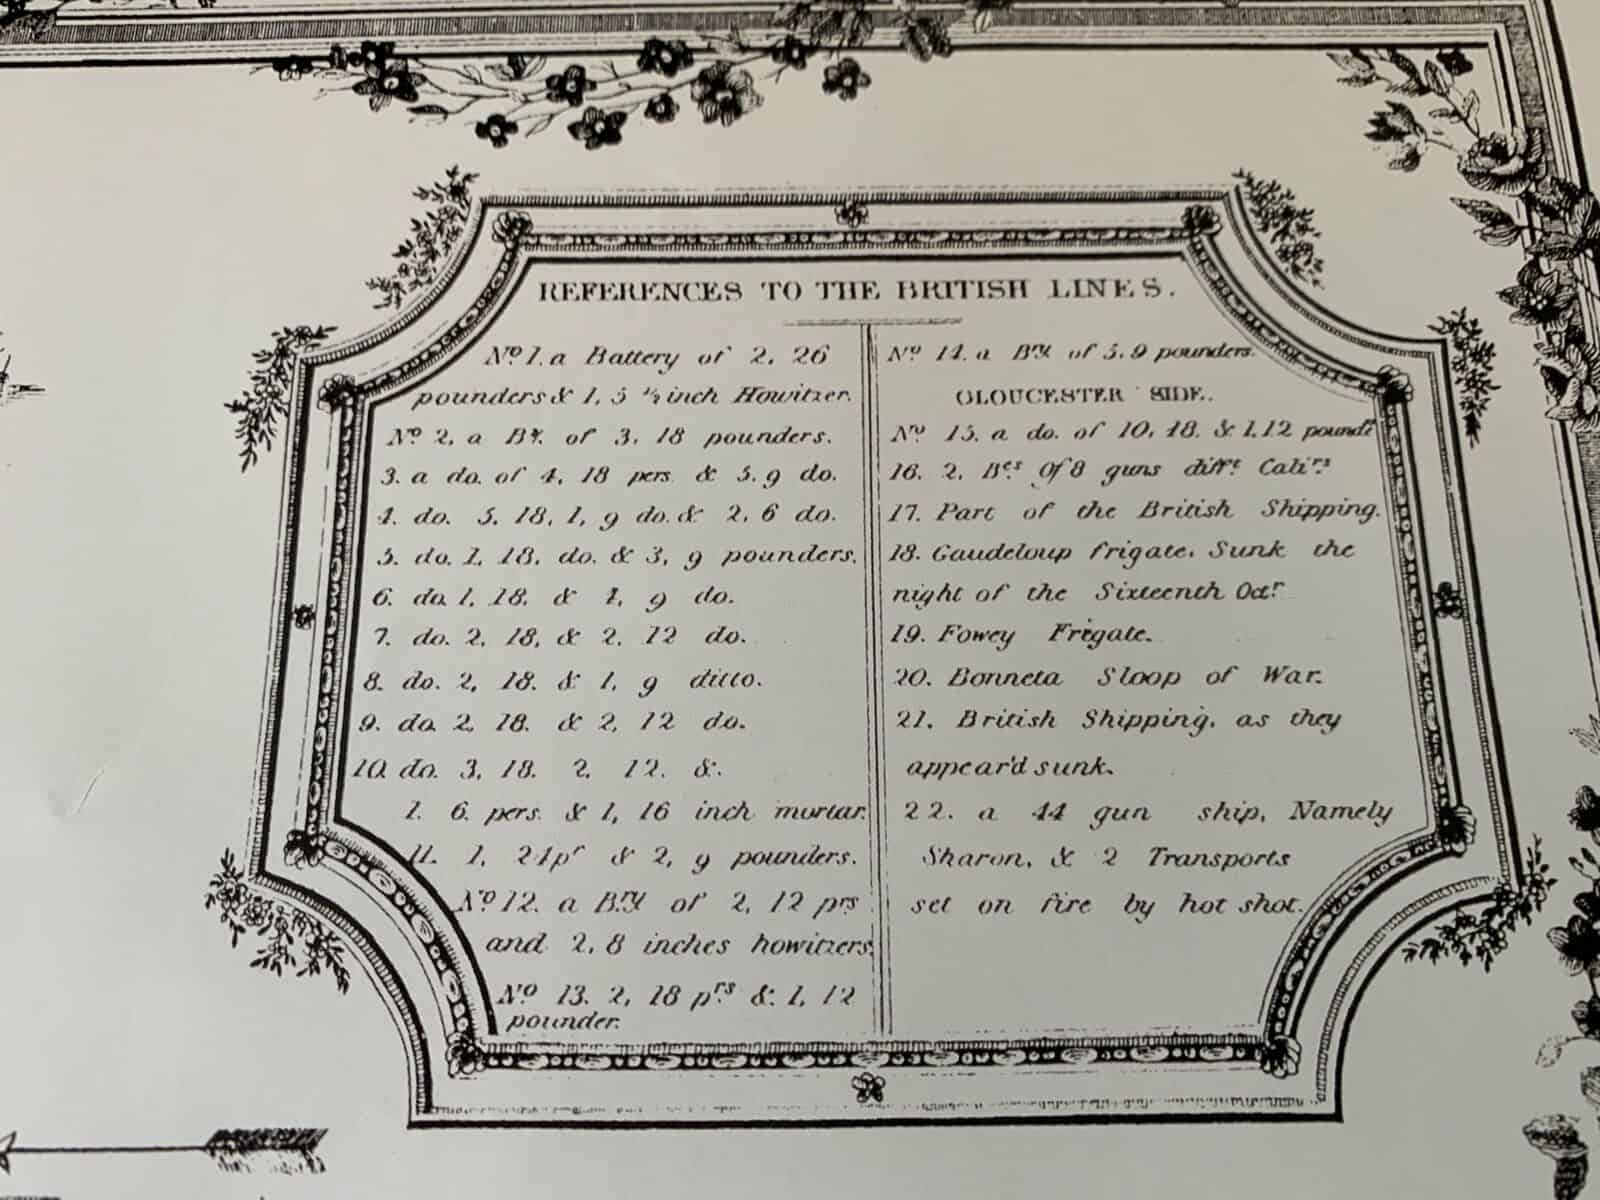 REFERENCES TO THE BRITISH LINES.
No. 1. a Battery of 2, 26
pounders & 1, 5 ½ inch Howitzer.
No. 2, a By. of 3, 18 pounders.
3. a do. of 4, 18 pers & 5. 9 do.
4. do. 5, 18, 1, 9 do. & 2, 6 do.
5. do. 1, 18, do. & 3, 9 pounders.
6. do. 1, 18. & 1, 9 do.
7. do. 2, 18, & 2, 12 do.
8. do. 2, 18. & 1, 9 ditto.
9. do. 2, 18. & 2, 12 do.
10. do. 3, 18. 2, 12. &.
1. 6. pers. & 1, 16 inch mortar.
11. 1, 24pr & 2, 9 pounders.
No. 12. a Bry of 2, 12 prs
and 2, 8 inches howitzers.
No. 13. 2, 18 prs & 1, 12
pounder.
No. 14. a Bry. of 5. 9 pounders.
GLOUCESTER SIDE.
No. 15. a do. of 10, 18. & 1, 12 pounds
16. 2, Bes Of 8 guns difft. Calirs
17. Part of the British Shipping.
18. Gaudeloup frigate. Sunk the
night of the Sixteenth Octr
19. Fowey Frigate.
20. Bonneta Sloop of War.
21. British Shipping, as they
appear'd sunk.
22. a 44 gun ship, Namely
Sharon, & 2 Transports
set on fire by hot shot.